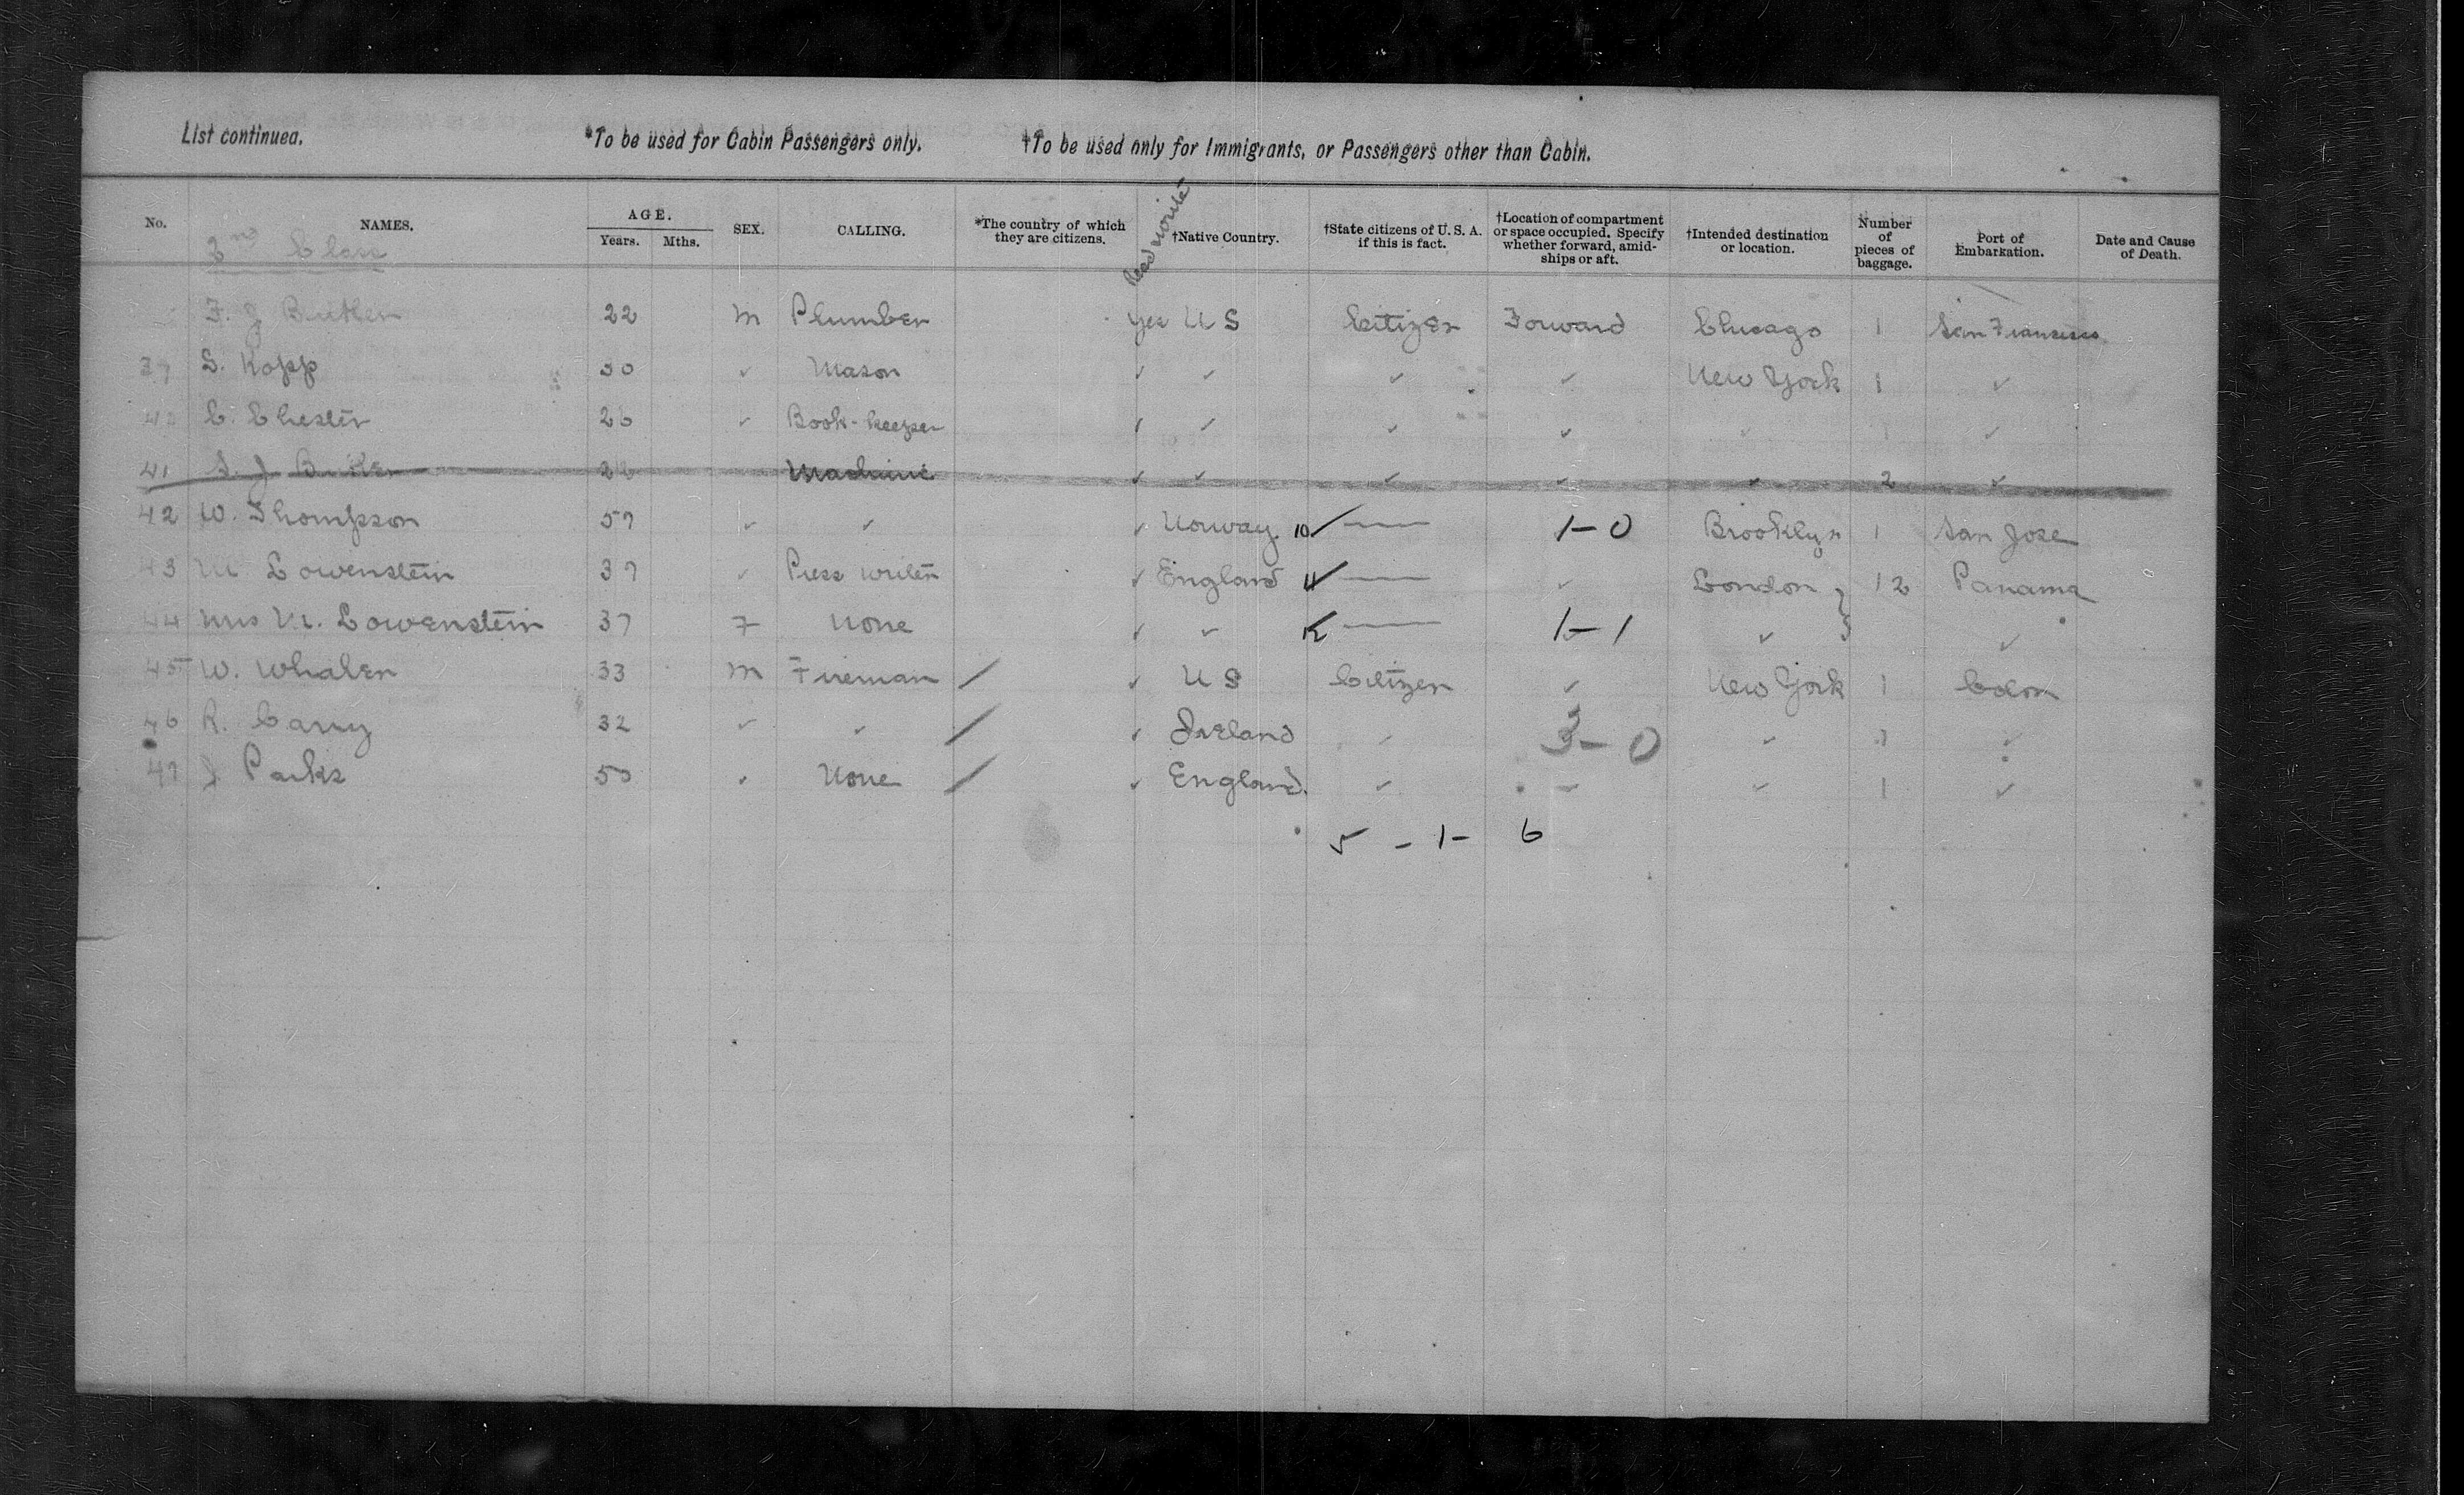 List continued. *To be used for Cabin Passengers only. †To be used only for Immigrants, or Passengers other than Cabin.
No. NAMES. AGE. Years. Mths. SEX. CALLING. *The country of which they are citizens. Read & write †Native Country. †State citizens of U. S. A. if this is fact. †Location of compartment or space occupied. Specify whether forward, amidships or aft. †Intended destination or location. Number of pieces of baggage. Port of Embarkation. Date and Cause of Death.
2nd Class
F. J Butler 22 M Plumber yes U S Citizen Forward Chicago 1 San Francisco
S. Kopp 30 ✓ Mason ✓ ✓ ✓ ✓ New York 1 ✓
C. Chester 26 ✓ Book-keeper ✓ ✓ ✓ ✓ ✓ 1 ✓
41 Machine ✓ ✓ ✓ ✓ ✓ 2 ✓
42 W. Thompson 57 ✓ ✓ ✓ Norway 10 ✓ — 1-0 Brooklyn 1 San Jose
43 M Lowenstein 37 ✓ Press writer ✓ England 11 ✓ — ✓ London } 12 Panama
44 Mrs M. Lowenstein 37 F None ✓ ✓ 12 — 1-1 ✓ ✓
45 W. Whalen 33 M Fireman / ✓ U S Citizen ✓ New York 1 Colon
46 R. Carry 32 ✓ ✓ / ✓ Ireland ✓ 3-0 ✓ 1 ✓
47 J Parks 50 ✓ None / ✓ England. ✓ ✓ ✓ 1 ✓
5 - 1 - 6